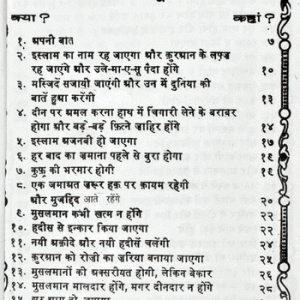 क्या ? कहां ?
१. अपनी बात ७
२. इस्लाम का नाम रह जाएगा और क़ुरआन के लफ़्ज़
रह जाएंगे और उले-मा-ए-सू पैदा होंगे १०
३. मस्जिदें सजायी जाएंगी और उन में दुनिया की
बातें हुआ करेंगी १३
४. दीन पर अमल करना हाथ में चिंगारी लेने के बराबर
होगा और बड़े-बड़े फ़ित्ने ज़ाहिर होंगे १४
५. इस्लाम अजनबी हो जाएगा
६. हर बाद का ज़माना पहले से बुरा होगा
७. कुफ़्र की भरमार होगी
८. एक जमाअत ज़रूर हक़ पर क़ायम रहेगी
और मुजद्दिद आते रहेंगे २०
९. मुसलमान कभी खत्म न होंगे २२
१०. हदीस से इन्कार किया जाएगा २२
११. नयी अक़ीदे और नयी हदीसें चलेंगी २४
१२. क़ुरआन को रोज़ी का ज़रिया बनाया जाएगा २५
१३. मुसलमानों की अक्सरीयत होगी, लेकिन बेकार २६
१४. मुसलमान मालदार होंगे, मगर दीनदार न होंगे २८